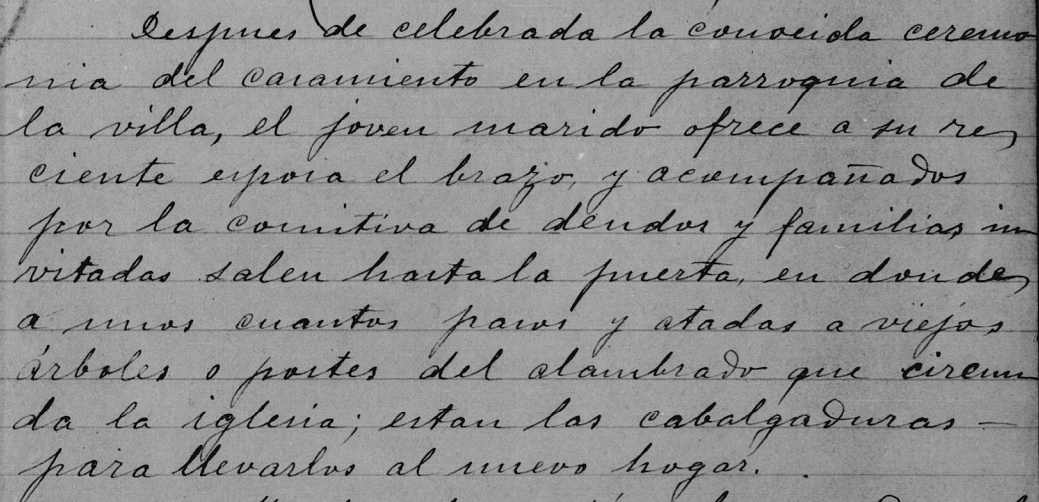 Despues de celebrada la conocida ceremo
nia del casamiento en la parroquia de
la villa, el joven marido ofrece a su re
ciente esposa el brazo, y acompañados
por la comitiva de deudos y familias in
vitadas salen hasta la puerta, en donde,
a unos cuantos pasos y atadas a viejos
árboles o postes del alambrado que circun
da la iglesia; estan las cabalgaduras —
para llevarlos al nuevo hogar.